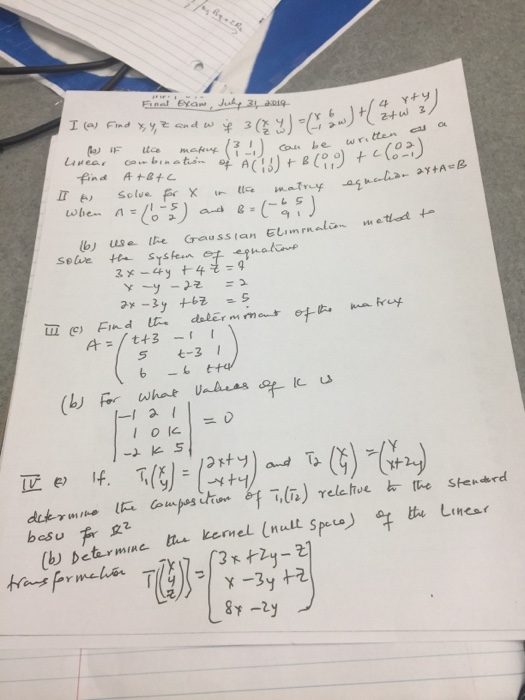 Final Exam, July 31, 2019
I (a) Find x, y, z and w if 3 (x y / z w) = (x 6 / -1 2w) + (4 x+y / z+w 3)
(b) IF the matrix (3 1 / 1 -1) can be written as a
Linear combination of A(1 1 / 1 0) + B(0 0 / 1 1) + C(0 2 / 0 -1)
find A+B+C
II a) Solve for X in the matrix equation 2X+A=B
when A = (1 -5 / 0 2) and B = (-6 5 / 9 1)
(b) use the Gaussian Elimination method to
solve the system of equations
3x - 4y + 4z = 9
x - y - 2z = 2
2x - 3y + 6z = 5
III (c) Find the determinant of the matrix
A = (t+3 -1 1
5 t-3 1
6 -6 t+4)
(b) For what values of K is
|-1 2 1
1 0 K
-2 K 5| = 0
IV a) If T₁(x / y) = (2x+y / -x+y) and T₂(x / y) = (x / x+2y)
determine the composition of T₁(T₂) relative to the standerd
basu for R²
(b) Determine the kernel (null space) of the Linear
transformation T[(x / y / z)] = [3x+2y-z
x-3y+z
8x-2y]